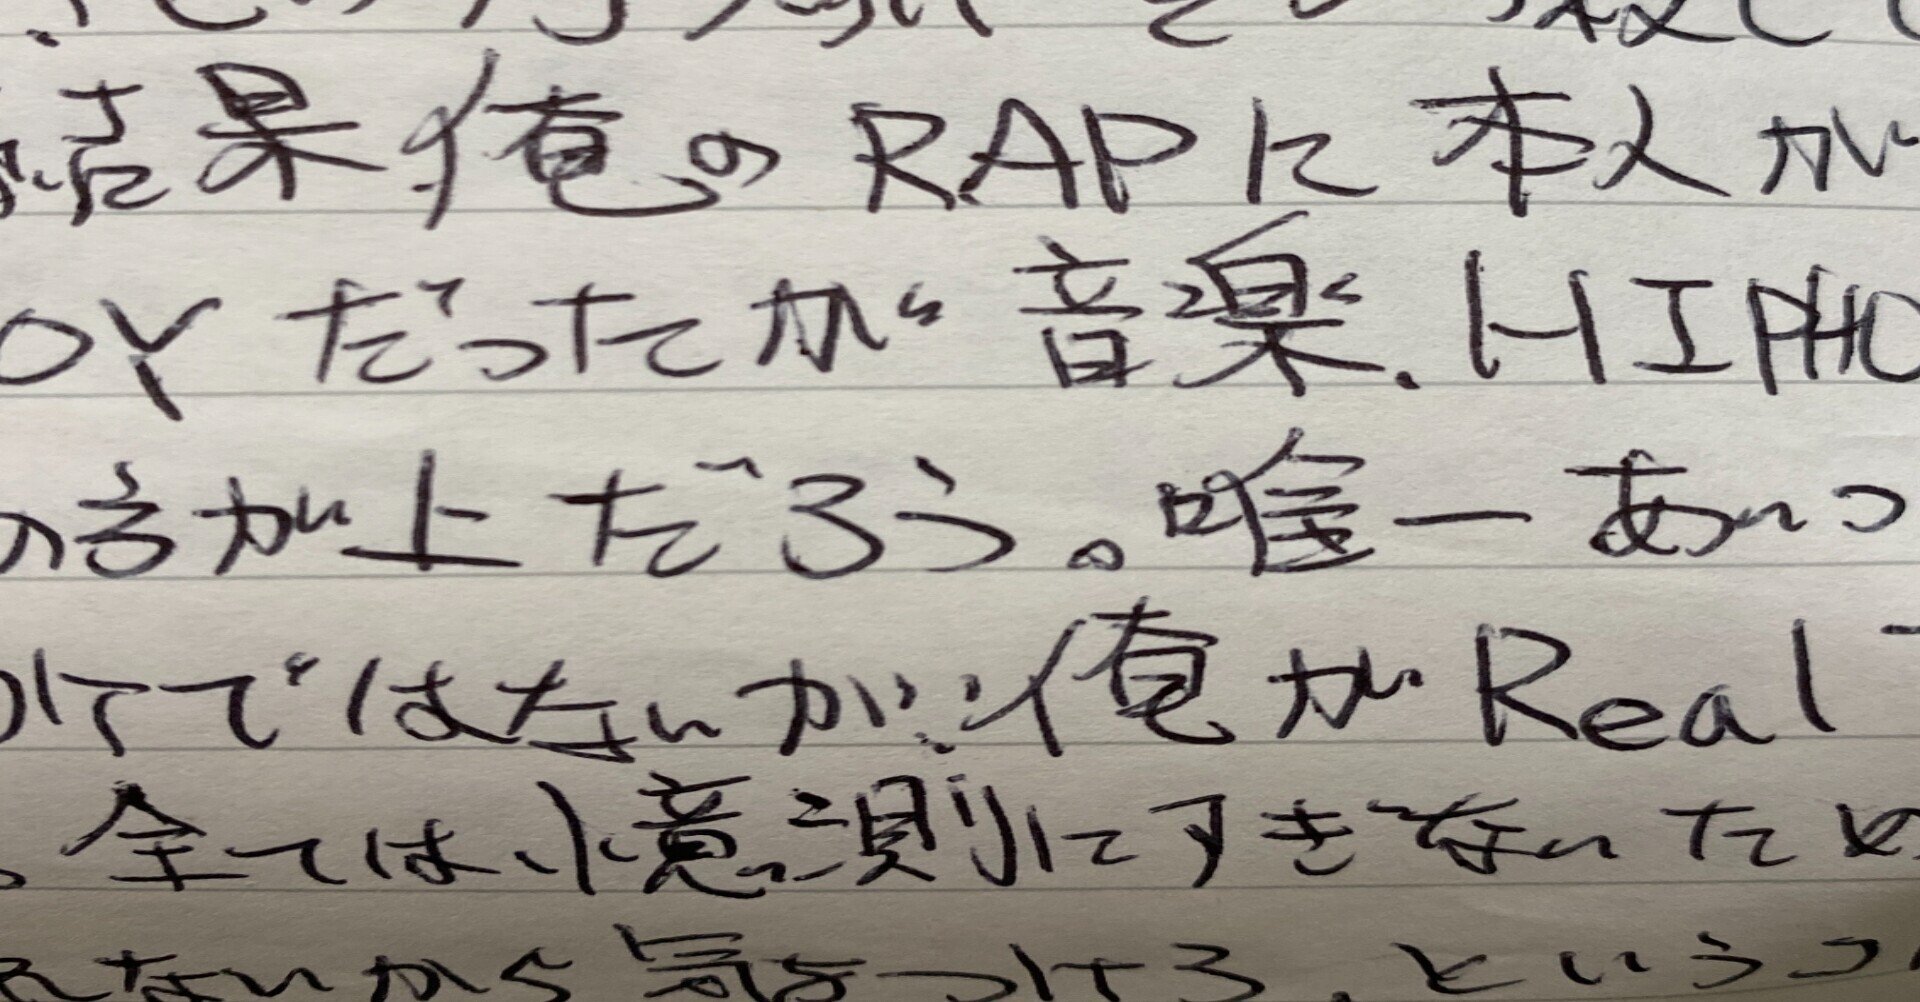 結果、俺のRAPに本人が
OYだったが音楽、HIPHO
の方が上だろう。唯一あいつ
けてではないが、俺がReal
。全ては憶測にすぎないため
れないから気をつけろ、という